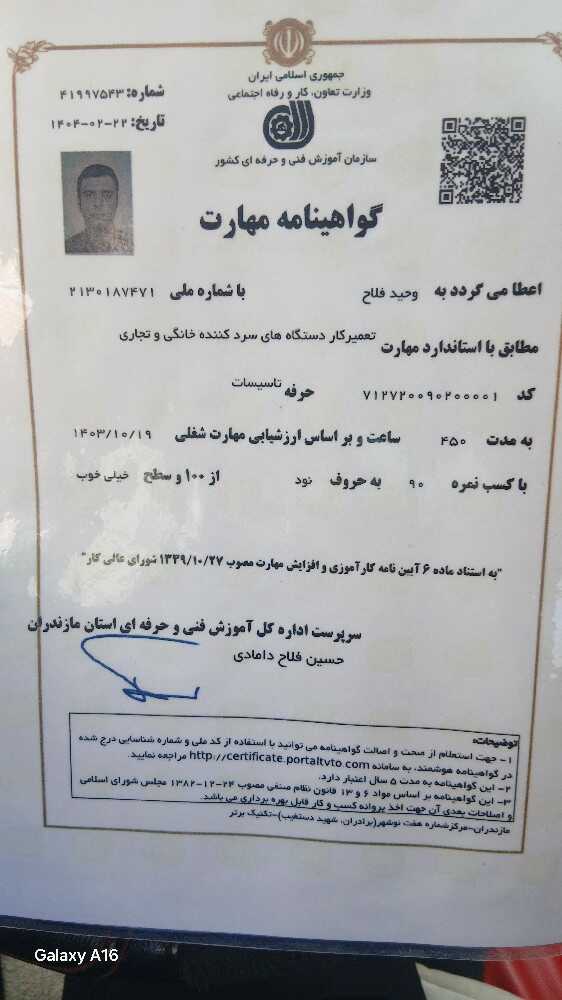 جمهوری اسلامی ایران
وزارت تعاون، کار و رفاه اجتماعی
شماره: ۴۱۹۹۷۵۴۳
تاریخ: ۱۴۰۴-۰۲-۲۲
سازمان آموزش فنی و حرفه ای کشور
گواهینامه مهارت
اعطا می گردد به وحید فلاح با شماره ملی ۲۱۳۰۱۸۷۴۷۱
مطابق با استاندارد مهارت تعمیرکار دستگاه های سرد کننده خانگی و تجاری
کد ۷۱۲۷۲۰۰۹۰۲۰۰۰۰۱ حرفه تاسیسات
به مدت ۴۵۰ ساعت و بر اساس ارزشیابی مهارت شغلی ۱۴۰۳/۱۰/۱۹
با کسب نمره ۹۰ به حروف نود از ۱۰۰ و سطح خیلی خوب
"به استناد ماده ۶ آیین نامه کارآموزی و افزایش مهارت مصوب ۱۳۳۹/۱۰/۲۷ شورای عالی کار"
سرپرست اداره کل آموزش فنی و حرفه ای استان مازندران
حسین فلاح دامادی
توضیحات:
۱- جهت استعلام از صحت و اصالت گواهینامه می توانید با استفاده از کد ملی و شماره شناسایی درج شده
در گواهینامه هوشمند، به سامانه http://certificate.portaltvto.com مراجعه نمایید.
۲- این گواهینامه به مدت ۵ سال اعتبار دارد.
۳- این گواهینامه بر اساس مواد ۶ و ۱۳ قانون نظام صنفی مصوب ۲۴-۱۲-۱۳۸۲ مجلس شورای اسلامی
و اصلاحات بعدی آن جهت اخذ پروانه کسب و کار قابل بهره برداری می باشد.
مازندران-مرکزشماره هفت نوشهر(برادران، شهید دستغیب)-تکنیک برتر
Galaxy A16